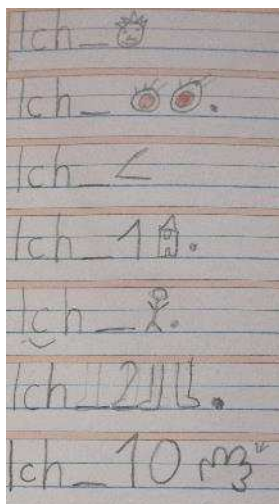 Ich _
Ich _ .
Ich _ <
Ich _ 1 .
Ich _ .
Ich _ 2 .
Ich _ 10